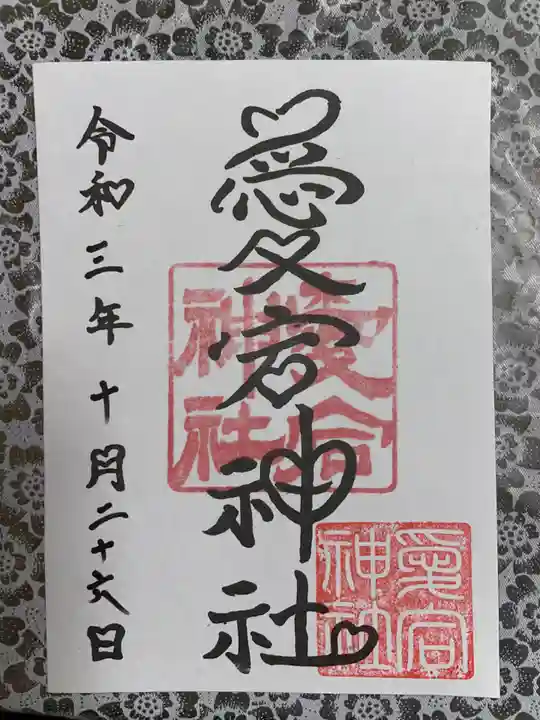 愛宕神社
愛宕神社
愛宕神社
令和三年十月二十六日